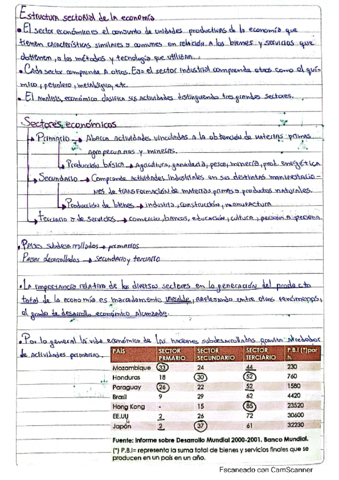 Estructura sectorial de la economía
• El sector económico es el conjunto de unidades productivas de la economía que
tienen características similares o comunes en relación a los bienes y servicios que
obtienen, a los métodos y tecnología que utilizan.
• Cada sector comprende A otros. Ej: el sector industrial comprende otros como el quí-
mico, petrolero, metalúrgico, etc.
• El análisis económico clasifica sus actividades distinguiendo tres grandes sectores.
Sectores económicos
→ Primario → Abarca actividades vinculadas a la obtención de materias primas
agropecuarias y mineras.
→ Producción básica → agricultura, ganadería, pesca, minería, prod. energética
→ Secundario → Comprende actividades industriales en sus distintas manifestacio-
nes de transformación de materias primas o productos naturales.
→ Producción de bienes → industria, construcción, manufactura
→ Terciario o de servicios → comercio, bancos, educación, cultura, persona a persona
Países subdesarrollados → primarios
Países desarrollados → secundario y terciario
• La importancia relativa de los diversos sectores en la generación del producto
total de la economía es marcadamente variable, reflejando entre otros fenómenos,
el grado de desarrollo económico alcanzado.
• Por lo general la vida económica de las naciones subdesarrolladas gira alrededor
de actividades primarias.
PAÍS SECTOR PRIMARIO SECTOR SECUNDARIO SECTOR TERCIARIO P.B.I (*)por h.
Mozambique 33 24 44 230
Honduras 18 30 52 760
Paraguay 26 22 52 1580
Brasil 9 29 62 4420
Hong Kong - 15 85 23520
EE.UU 2 26 72 30600
Japón 2 37 61 32230
Fuente: Informe sobre Desarrollo Mundial 2000-2001. Banco Mundial.
(*) P.B.I= representa la suma total de bienes y servicios finales que se
producen en un país en un año.
Escaneado con CamScanner